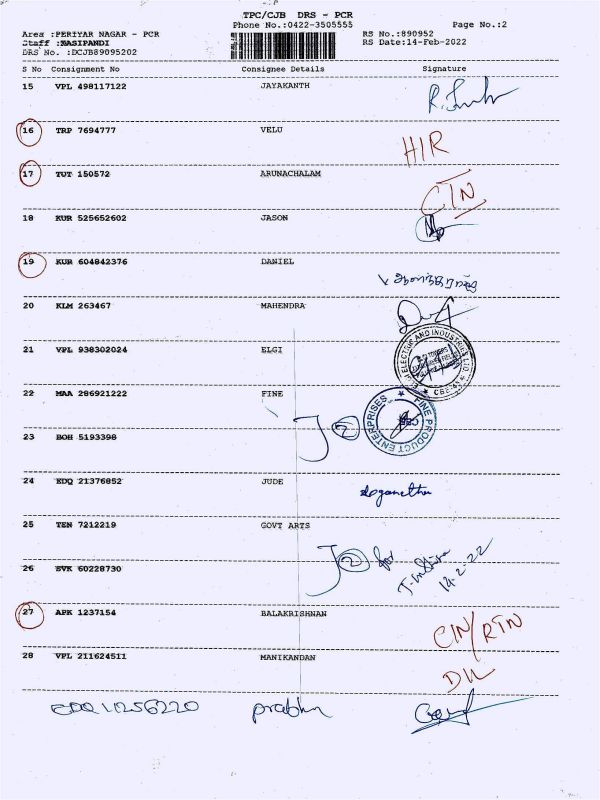 TPC/CJB DRS - PCR
Phone No.:0422-3505555 Page No.:2
Area :PERIYAR NAGAR - PCR RS No.:890952
Staff :MASIPANDI RS Date:14-Feb-2022
DRS No. :DCJB89095202
S No Consignment No Consignee Details Signature
15 VPL 498117122 JAYAKANTH
16 TRP 7694777 VELU HIR
17 TUT 150572 ARUNACHALAM CTN
18 KUR 525652602 JASON
19 KUR 604842376 DANIEL
20 KLM 263467 MAHENDRA
21 VPL 938302024 ELGI
ELGI ELECTRIC AND INDUSTRIES LTD.
22 MAA 286921222 FINE
FINE PRODUCT ENTERPRISES
CBE
2
23 BOH 5193398
24 EDQ 21376852 JUDE
25 TEN 7212219 GOVT ARTS
2 for
14-2-22
26 EVK 60228730
27 APK 1237154 BALAKRISHNAN CIN/RTN
28 VPL 211624511 MANIKANDAN DIL
prabhu